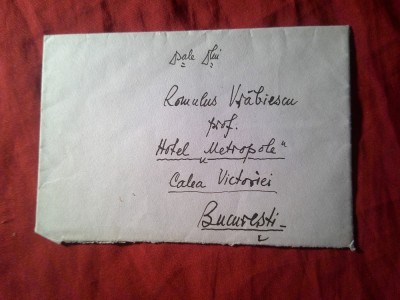 Dsale Dlui
Romulus Vrăbiescu
prof.
Hotel „Metropole"
Calea Victoriei
București